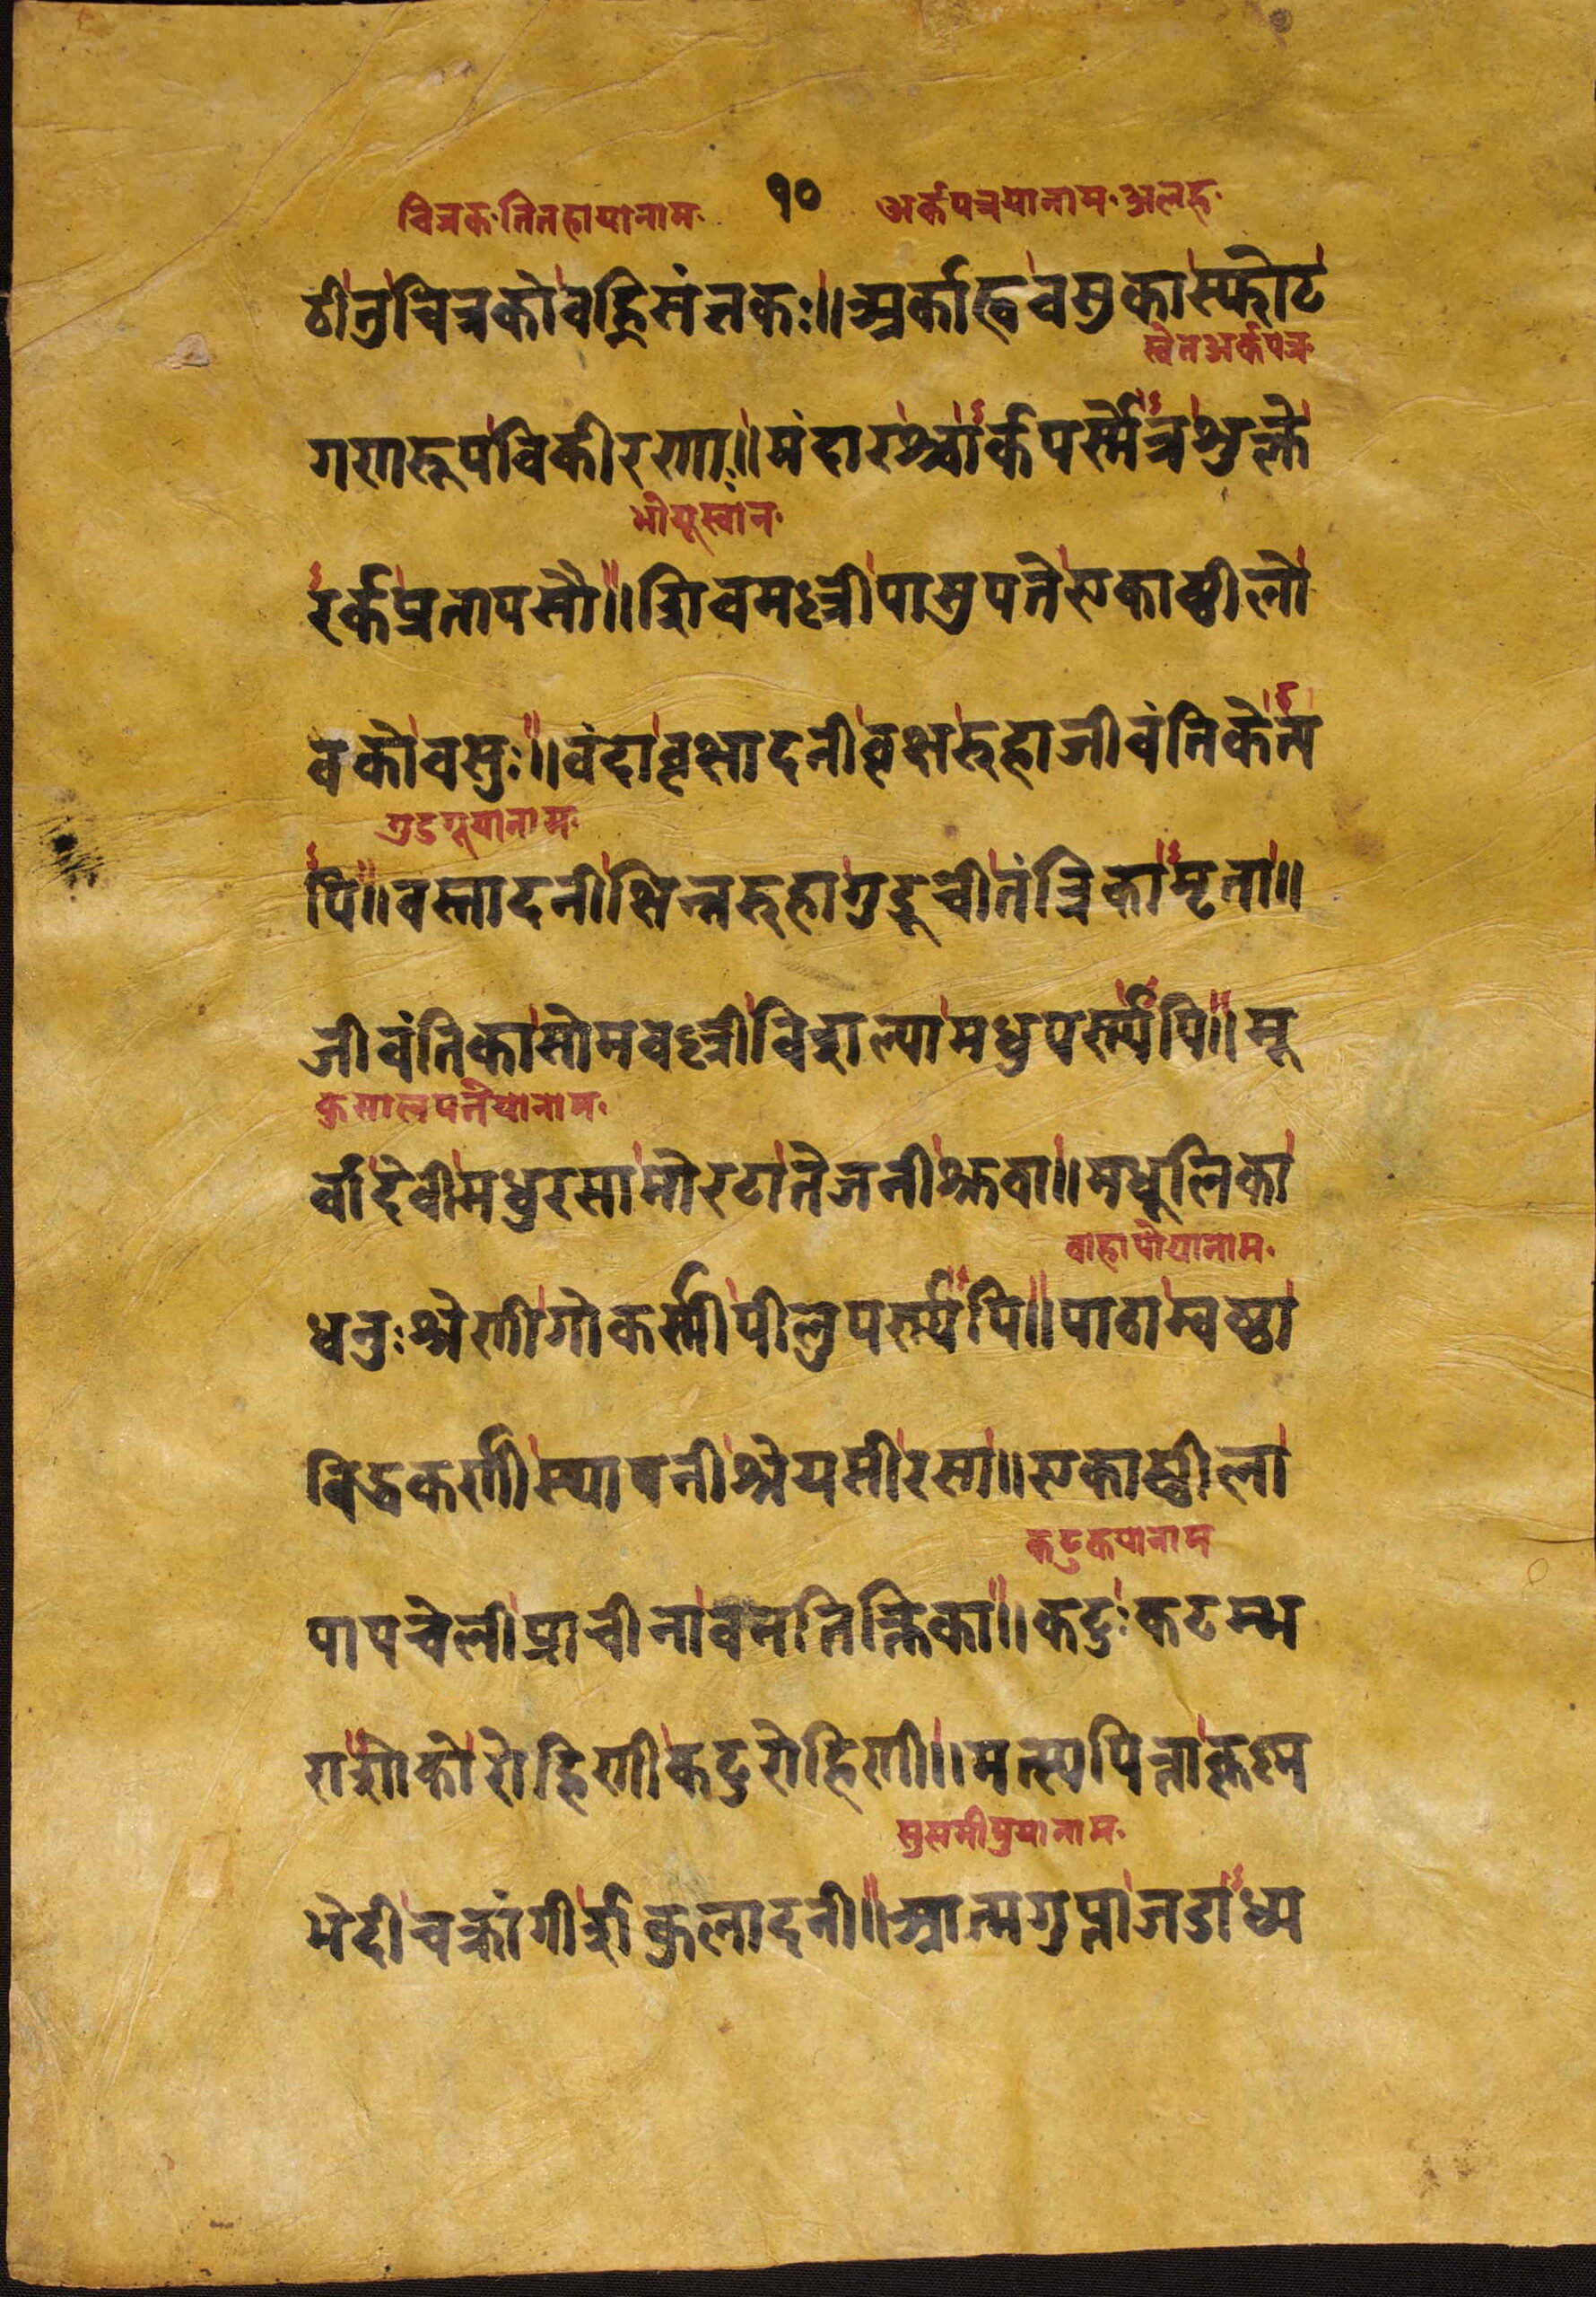 १०
चित्रक॰तितहायानाम॰ अर्कपत्रयानाम॰अलह॰
ठीतुचित्रकोवह्निसंतकः॥अर्काह्ववसुकास्फोट
स्वेतअर्कपत्र
गणरूपविकीरणाः॥मंदारश्चार्कपर्णोत्रशुक्ले
भीयूस्वांन॰
रर्कप्रतापसौ॥शिवमल्लीपासुपतेएकाष्ठीलो
वकोवसुः॥वंदावृक्षादनीवृक्षरुहाजीवंतिकेत्य
गुडगूयानाम॰
पि॥वत्सादनीक्षिन्नरुहागुडूचीतंत्रिकामृता॥
जीवंतिकासोमवल्लीविशल्यामधुपर्ण्यपि॥मू
कुसालपतेयानाम॰
र्वादेवीमधुरसामोरटातेजनीश्रवा॥मधूलिका
वाहापौयानाम॰
धनुःश्रेणीगोकर्णीपीलुपर्ण्यपि॥पाठाम्वष्ठा
विद्धकर्णीस्थापनीश्रेयसीरसा॥एकाष्ठीला
कटुकयानाम
पापचेलीप्राचीनावनतिक्तिका॥कटुःकटम्भ
राशोकोरोहिणीकटुरोहिणी॥मत्स्यपित्ताकृष्म
सुसमीपुयानाम॰
भेदीचक्रांगीशकुलादनी॥आत्मगुप्ताजडाध्य